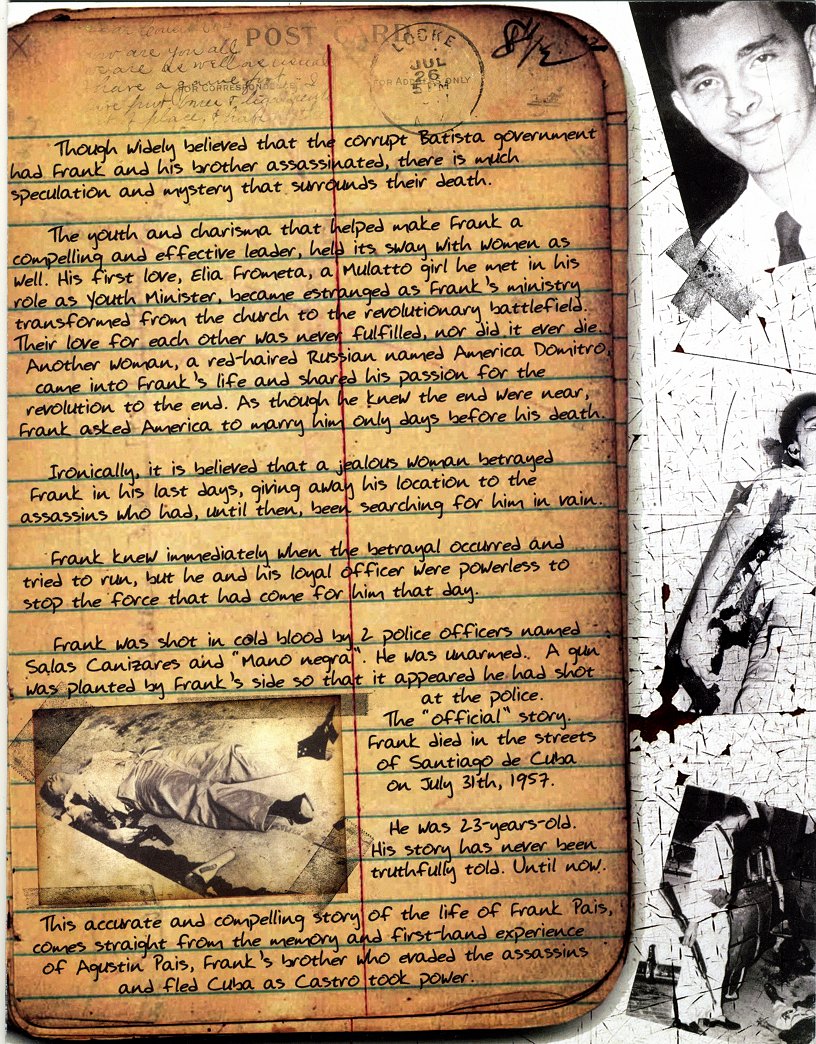 POST CARD
LOCKE
JUL
26
5 PM
how are you all
we are as well as usual
FOR CORRESPONDENCE
FOR ADDRESS ONLY
Though widely believed that the corrupt Batista government
had Frank and his brother assassinated, there is much
speculation and mystery that surrounds their death.
The youth and charisma that helped make Frank a
compelling and effective leader, held its sway with women as
well. His first love, Elia Frometa, a Mulatto girl he met in his
role as Youth Minister, became estranged as Frank's ministry
transformed from the church to the revolutionary battlefield.
Their love for each other was never fulfilled, nor did it ever die.
Another woman, a red-haired Russian named America Domitro,
came into Frank's life and shared his passion for the
revolution to the end. As though he knew the end were near,
Frank asked America to marry him only days before his death.
Ironically, it is believed that a jealous woman betrayed
Frank in his last days, giving away his location to the
assassins who had, until then, been searching for him in vain.
Frank knew immediately when the betrayal occurred and
tried to run, but he and his loyal officer were powerless to
stop the force that had come for him that day.
Frank was shot in cold blood by 2 police officers named
Salas Canizares and "Mano negra". He was unarmed. A gun
was planted by Frank's side so that it appeared he had shot
at the police.
The "official" story.
Frank died in the streets
of Santiago de Cuba
on July 31th, 1957.
He was 23-years-old.
His story has never been
truthfully told. Until now.
This accurate and compelling story of the life of Frank Pais,
comes straight from the memory and first-hand experience
of Agustin Pais, Frank's brother who evaded the assassins
and fled Cuba as Castro took power.